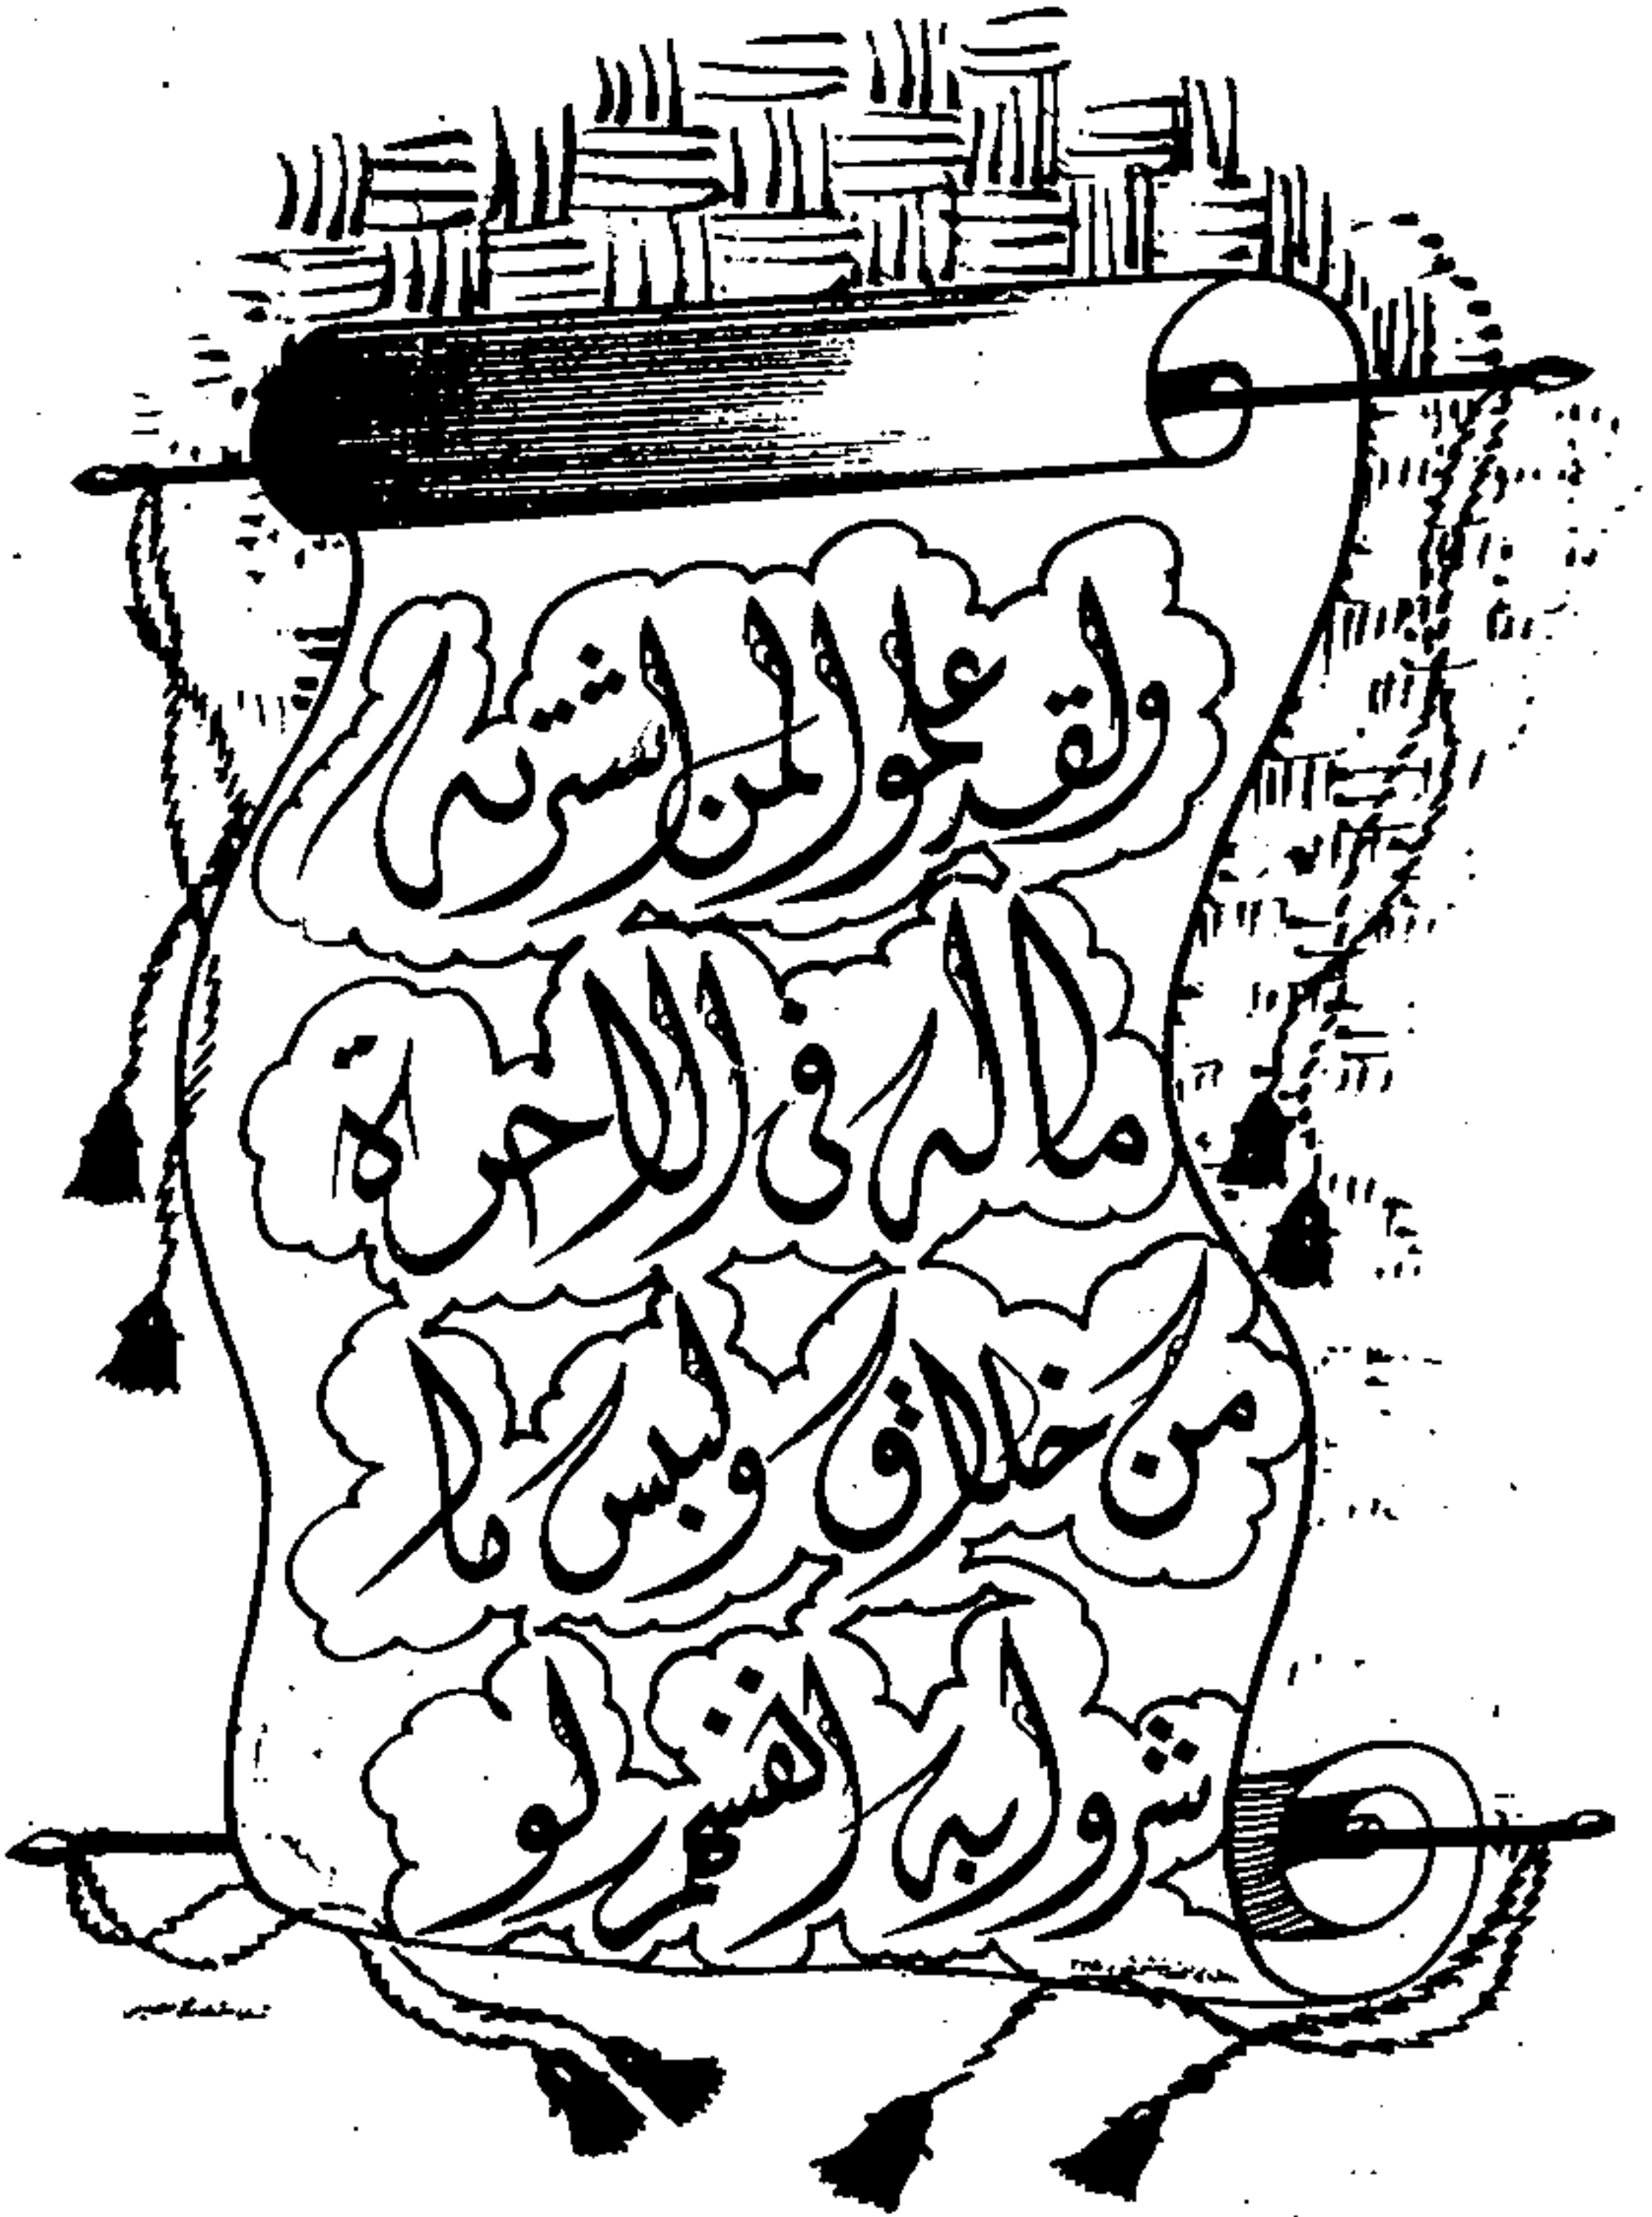 ولقد علموا لمن اشترىه
ماله فى الاخرة
من خلاق ولبس ما
شروا به انفسهم لو